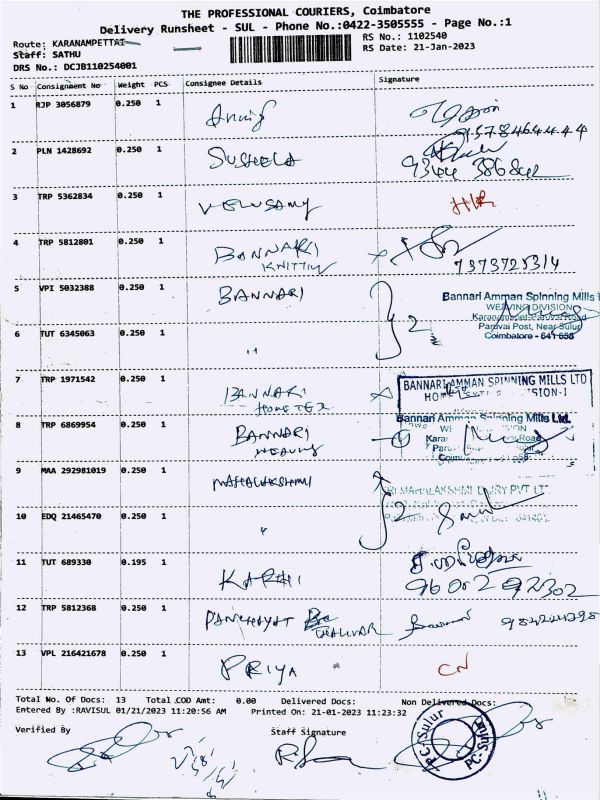 THE PROFESSIONAL COURIERS, Coimbatore
Delivery Runsheet - SUL - Phone No.:0422-3505555 - Page No.:1
Route: KARANAMPETTAI
Staff: SATHU
DRS No.: DCJB110254001
RS No.: 1102540
RS Date: 21-Jan-2023
S No Consignment No Weight PCS Consignee Details Signature
1 RJP 3056879 0.250 1
9578464444
2 PLN 1428692 0.250 1 SUSHEELA
9344 386842
3 TRP 5362834 0.250 1 VELUSAMY
4 TRP 5812801 0.250 1 BANNARI
KNITTING
7373725314
5 VPI 5032388 0.250 1 BANNARI 2
Bannari Amman Spinning Mills
WEAVING DIVISION
Karanampet-Paruvai Road
Paruvai Post, Near Sulur
Coimbatore - 641 658
6 TUT 6345063 0.250 1 "
7 TRP 1971542 0.250 1 BANNARI
HOMETEX
BANNARI AMMAN SPINNING MILLS LTD
8 TRP 6869954 0.250 1 BANNARI
WEAVING
Bannari Amman Spinning Mills Ltd.
9 MAA 292981019 0.250 1 MAHALAKSHMI 2
SRI MAHALAKSHMI DAIRY PVT LT
10 EDQ 21465470 0.250 1 "
11 TUT 689330 0.195 1
96002 92302
12 TRP 5812368 0.250 1 PANCHAYAT
13 VPL 216421678 0.250 1 PRIYA CN
Total No. Of Docs: 13 Total COD Amt: 0.00 Delivered Docs: Non Delivered Docs:
Entered By :RAVISUL 01/21/2023 11:20:56 AM Printed On: 21-01-2023 11:23:32
Verified By Staff Signature
P.C. Sulur